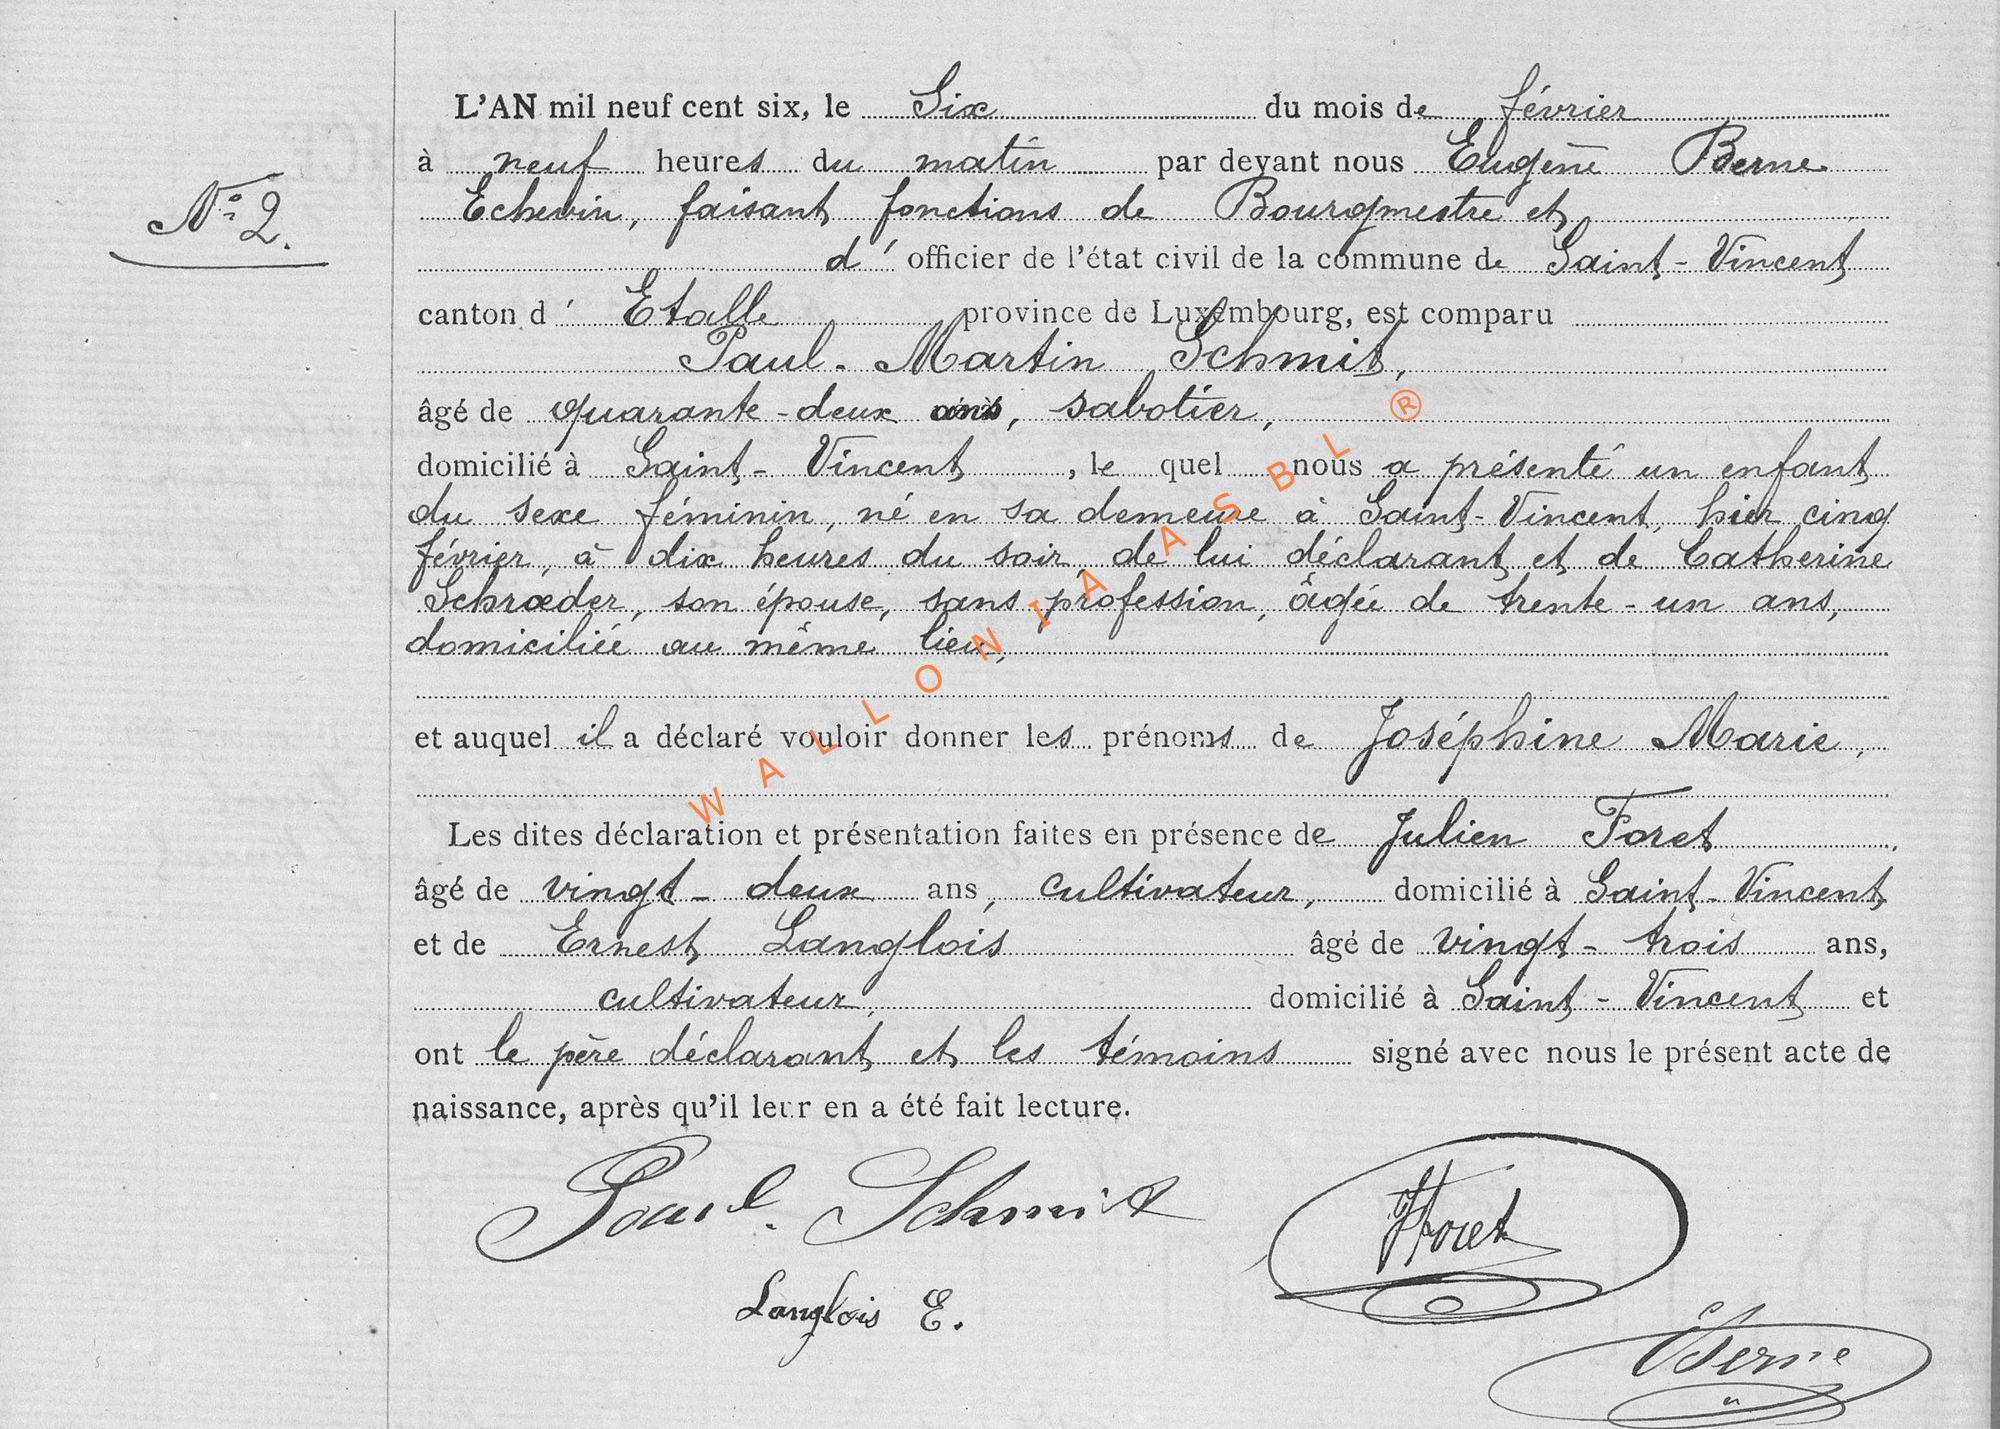 N° 2.
L'AN mil neuf cent six, le Six du mois de février
à neuf heures du matin par devant nous Eugène Berne
Echevin, faisant fonctions de Bourgmestre et
d' officier de l'état civil de la commune de Saint-Vincent
canton d' Etalle province de Luxembourg, est comparu
Paul-Martin Schmit,
âgé de quarante-deux ans, sabotier,
domicilié à Saint-Vincent, le quel nous a présenté un enfant
du sexe féminin, né en sa demeure à Saint-Vincent, hier cinq
février, à dix heures du soir, de lui déclarant et de Catherine
Schrœder, son épouse, sans profession, âgée de trente-un ans,
domiciliée au même lieu,
et auquel il a déclaré vouloir donner les prénoms de Joséphine Marie,
Les dites déclaration et présentation faites en présence de Julien Foret
âgé de vingt-deux ans, cultivateur, domicilié à Saint-Vincent
et de Ernest Langlois âgé de vingt-trois ans,
cultivateur, domicilié à Saint-Vincent et
ont le père déclarant et les témoins signé avec nous le présent acte de
naissance, après qu'il leur en a été fait lecture.
Paul. Schmit
JForet
Langlois E.
EBerne
WALLONIA ASBL ®